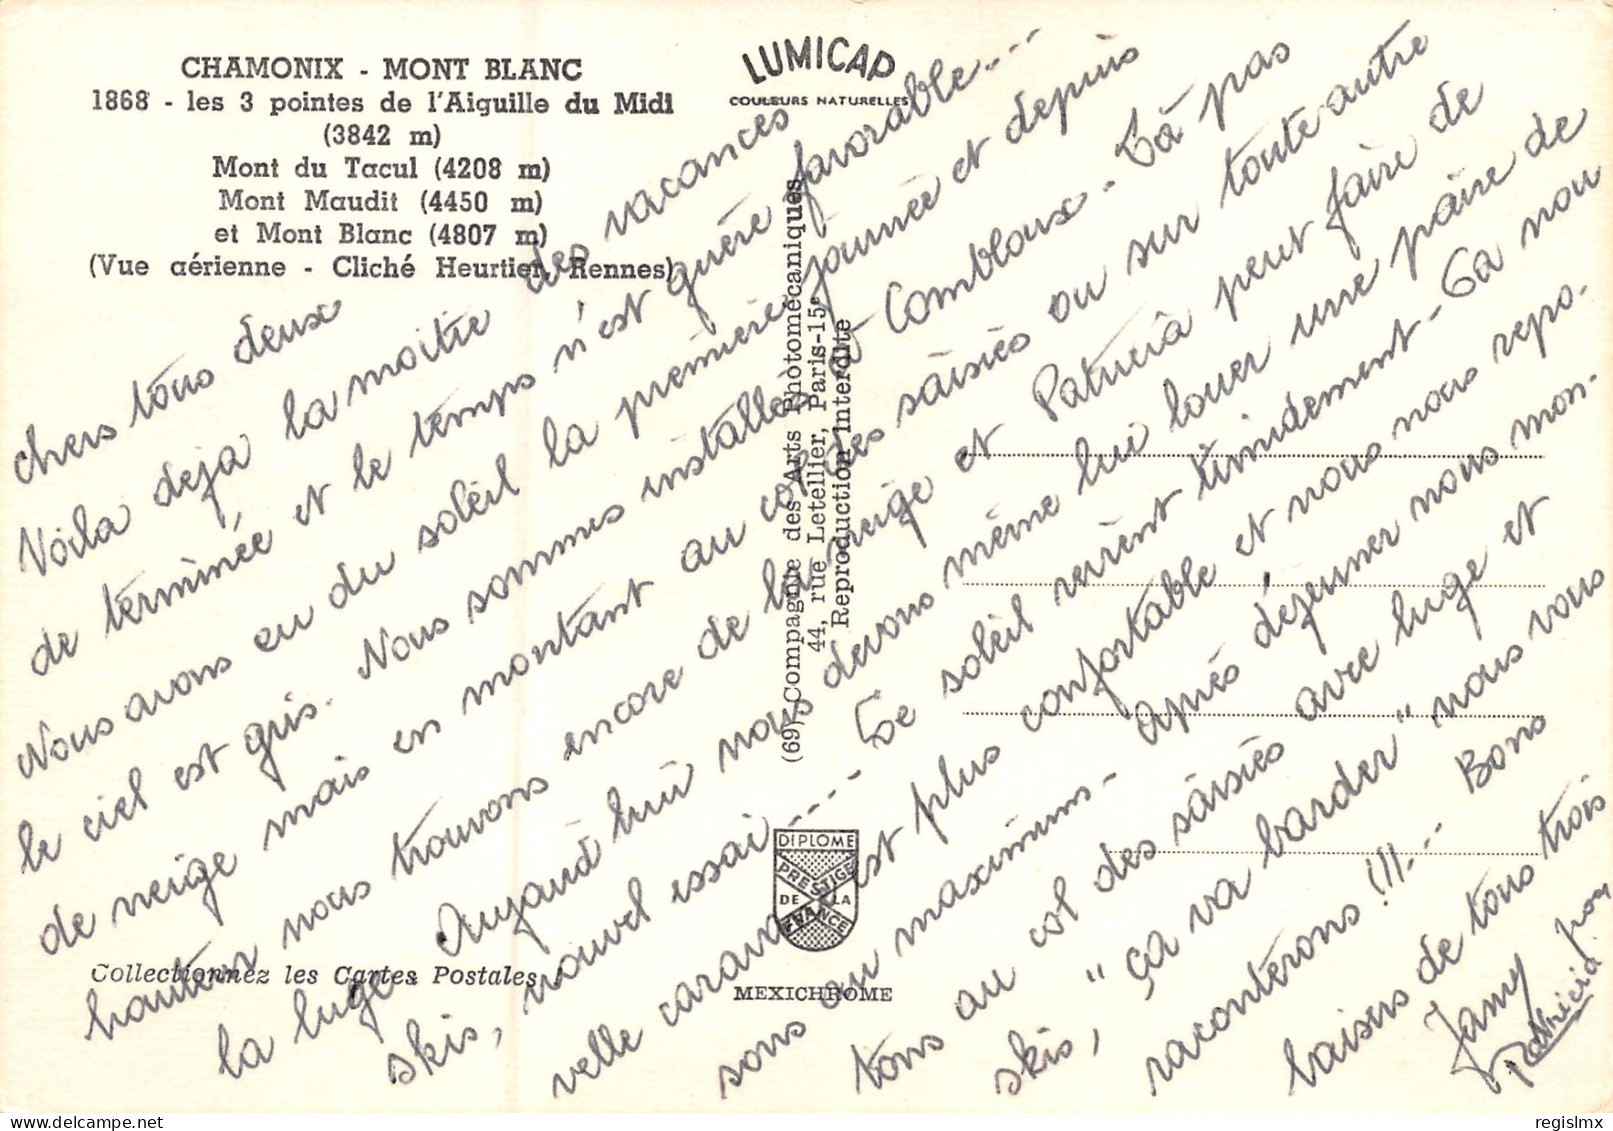 CHAMONIX - MONT BLANC
1868 - les 3 pointes de l'Aiguille du Midi
(3842 m)
Mont du Tacul (4208 m)
Mont Maudit (4450 m)
et Mont Blanc (4807 m)
(Vue aérienne - Cliché Heurtier, Rennes)
LUMICAP
COULEURS NATURELLES
chers tous deux
Voila deja la moitié des vacances
de terminée et le temps n'est guère favorable...
Nous avons eu du soleil la première journée et depuis
le ciel est gris. Nous sommes installés à Combloux. Là pas
de neige mais en montant au col des saisiés ou sur toute autre
hauteur nous trouvons encore de la neige et Patricia peut faire de
la luge. Aujourd'hui nous devons même lui louer une paire de
skis, nouvel essai.... Le soleil revient timidement. Ca nou
velle caravane est plus confortable et nous nous repo.
sons au maximum. après déjeuner nous mon.
tons au col des saisiés avec luge et
skis, "ça va barder" nous vous
raconterons !!!... Bons
baisers de tous trois
Jamy
Patricia
(69) Compagnie des Arts Photomécaniques
44, rue Letellier, Paris-15e
Reproduction Interdite
DIPLOME
PRESTIGE
DE LA
FRANCE
MEXICHROME
Collectionnez les Cartes Postales
regislmx